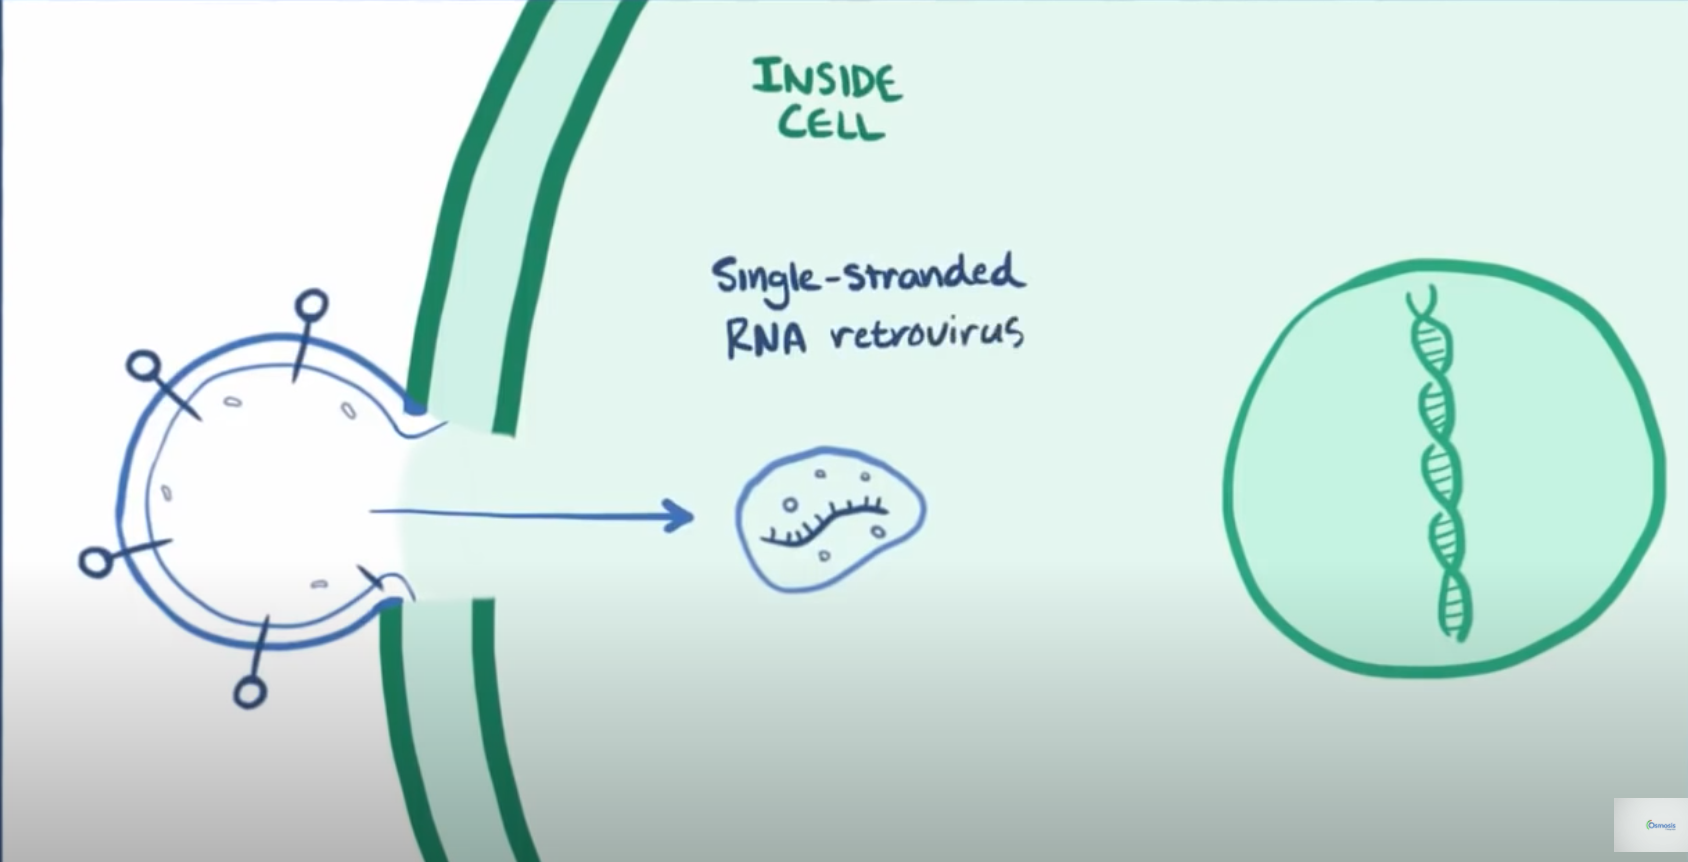 INSIDE
CELL
Single-stranded
RNA retrovirus
Osmosis